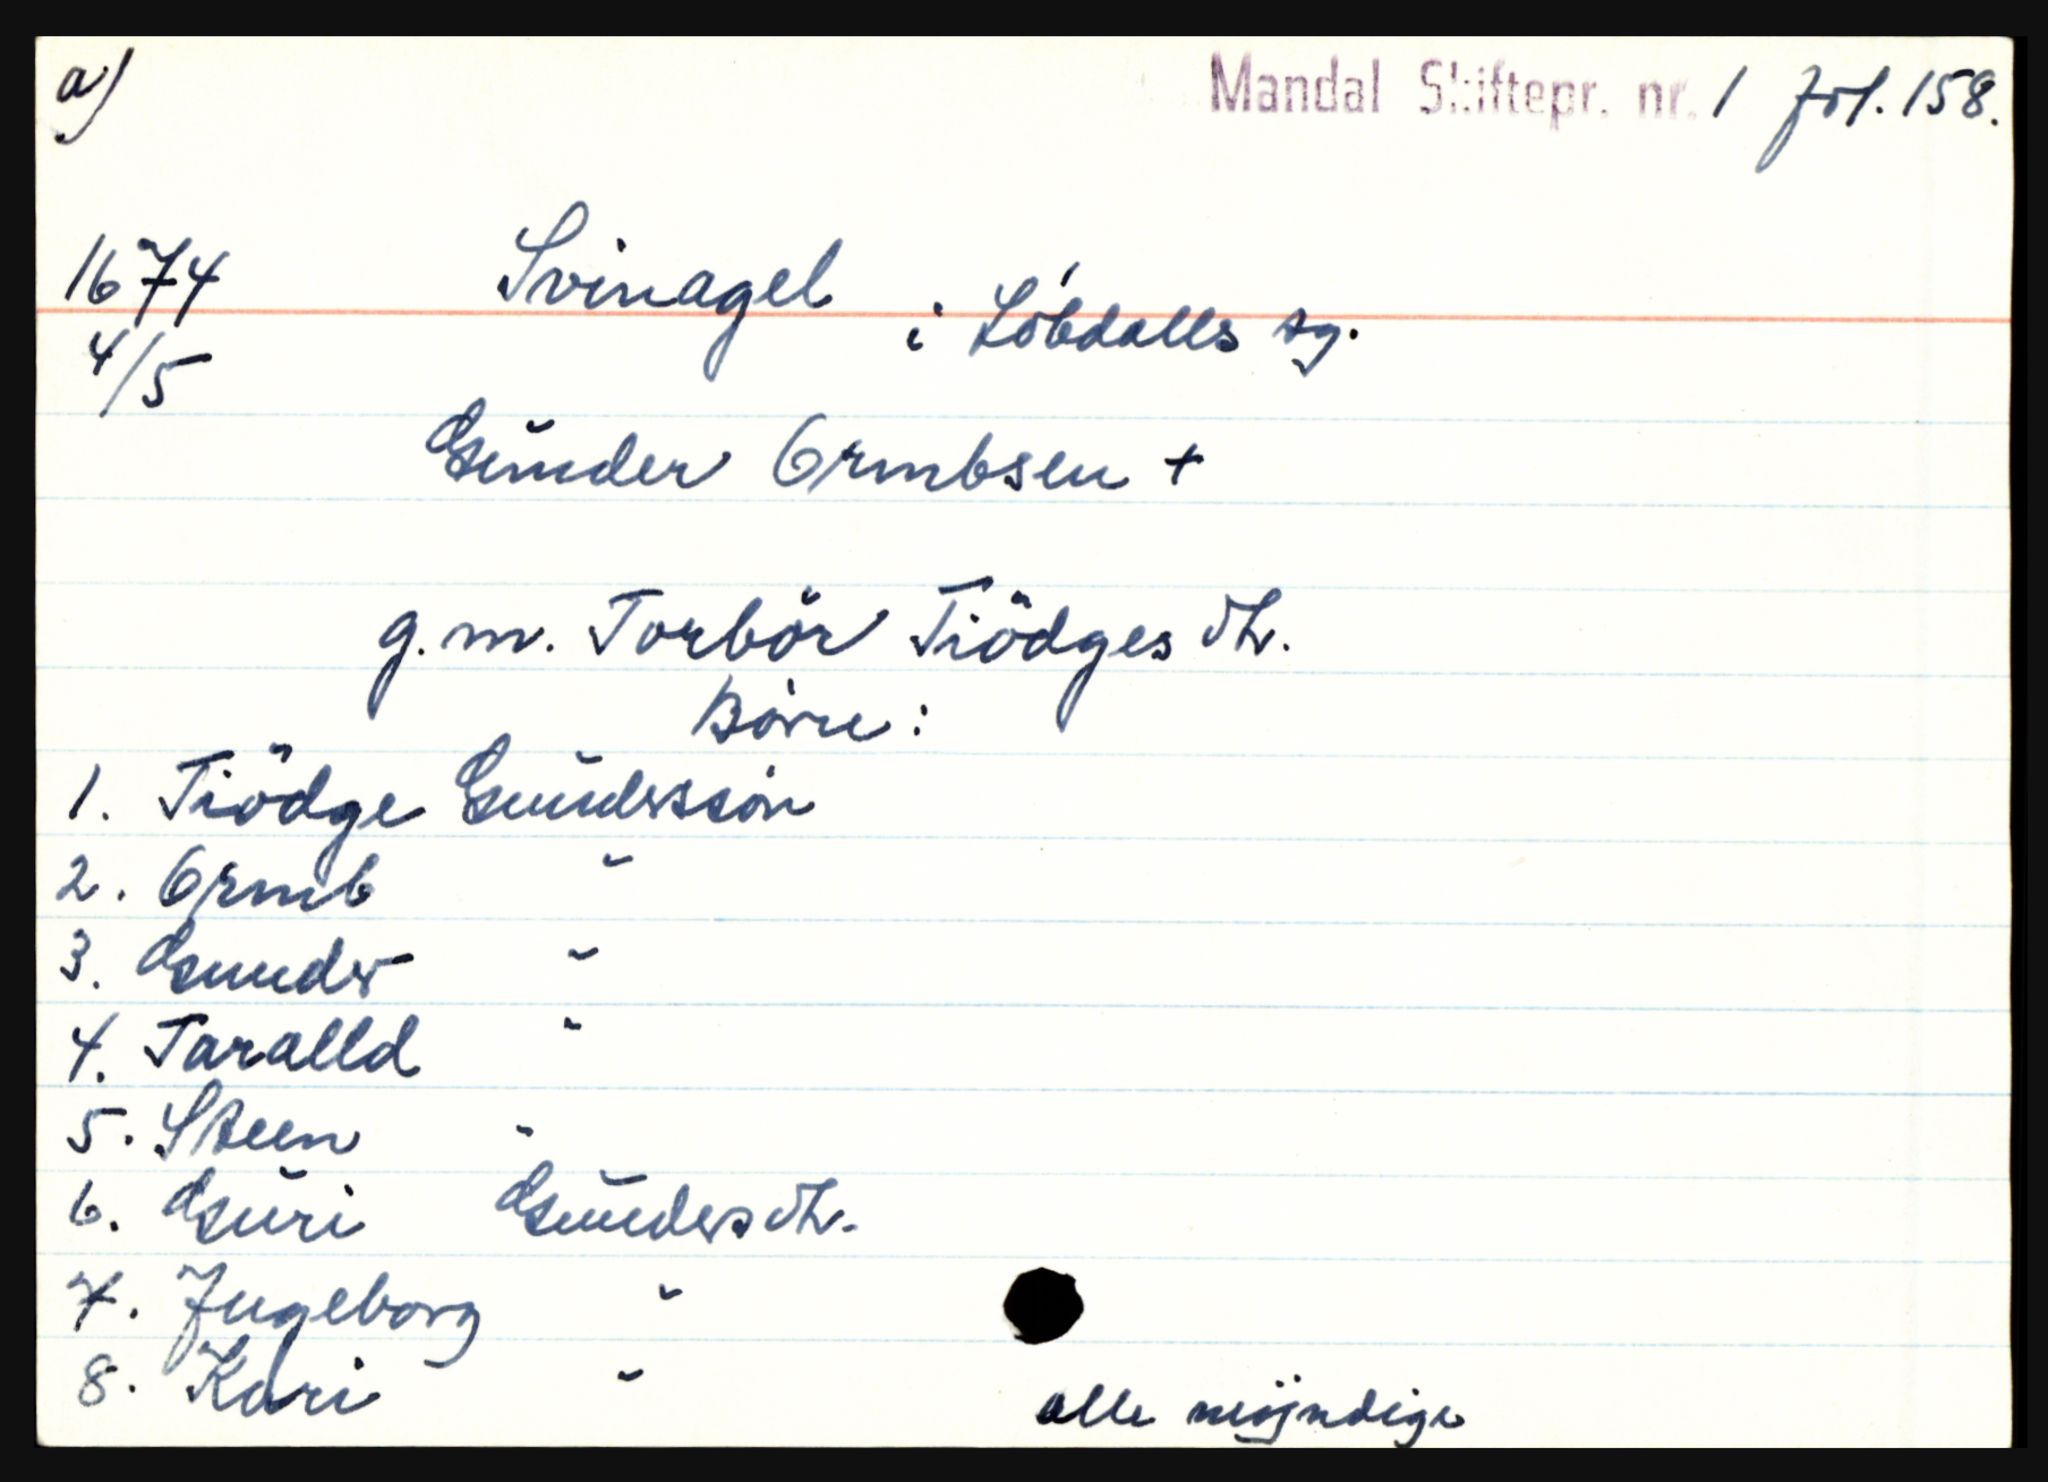 a) Mandal Skiftepr. nr. 1 fol. 158.
1674 Svinagel i Løbdalls sg.
4/5
Gŭnder Ormbsen +
g. m. Torbŏr Tiödges dtr.
Børn :
1. Tiödge Gŭnderssøn
2. Ormb "
3. Gunder "
4. Taralld "
5. Steen "
6. Gŭri Gŭnders dtr.
7. Ingeborg "
8. Kari "
alle møjndige